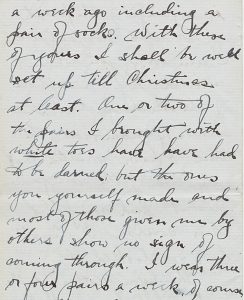 a week ago including a
pair of socks. With these
of yours I shall be well
set up till Christmas
at least. One or two of
the pairs I brought with
white toes have have had
to be darned but the ones
you yourself made and
most of those given me by
others show no sign of
coming through. I wear three
or four pairs a week of course